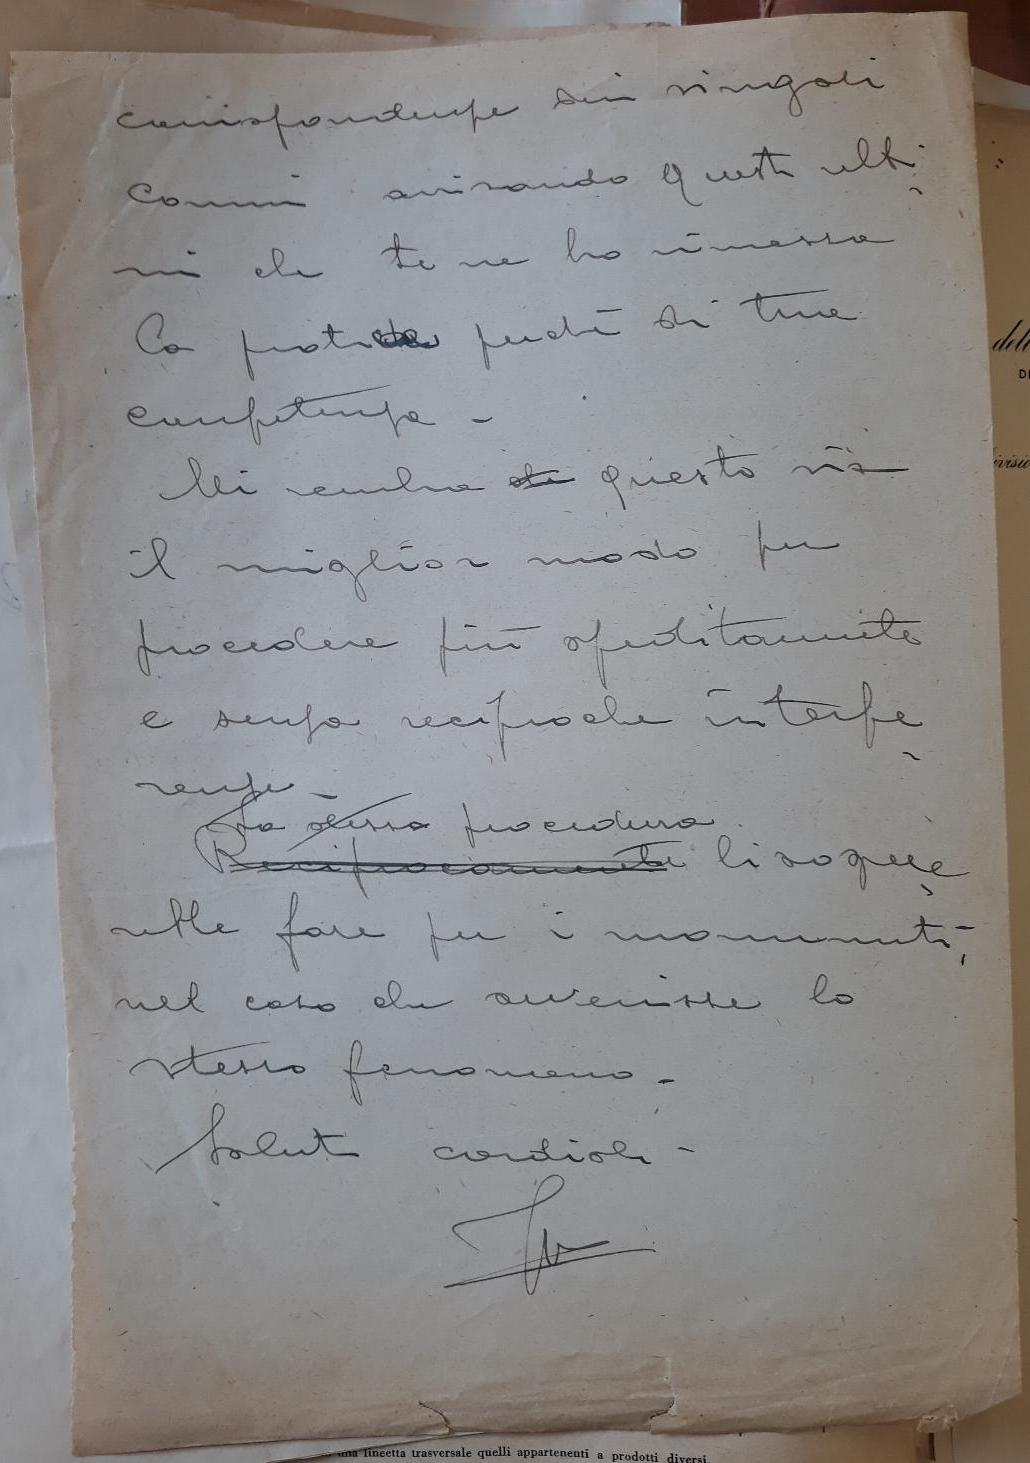 corrispondenze dei singoli
comuni avvisando questi ulti-
mi che te ne ho rimessa
la pratica perché di tua
competenza -
Mi sembra che questo sia
il miglior modo per
procedere più speditamente
e senza reciproche interfe-
renze -
La stessa procedura
Reciprocamente bisogne-
rebbe fare per i monumenti,
nel caso che avvenisse lo
stesso fenomeno -
Saluti cordiali -
dell
DI
ivisio
una lineetta trasversale quelli appartenenti a prodotti diversi